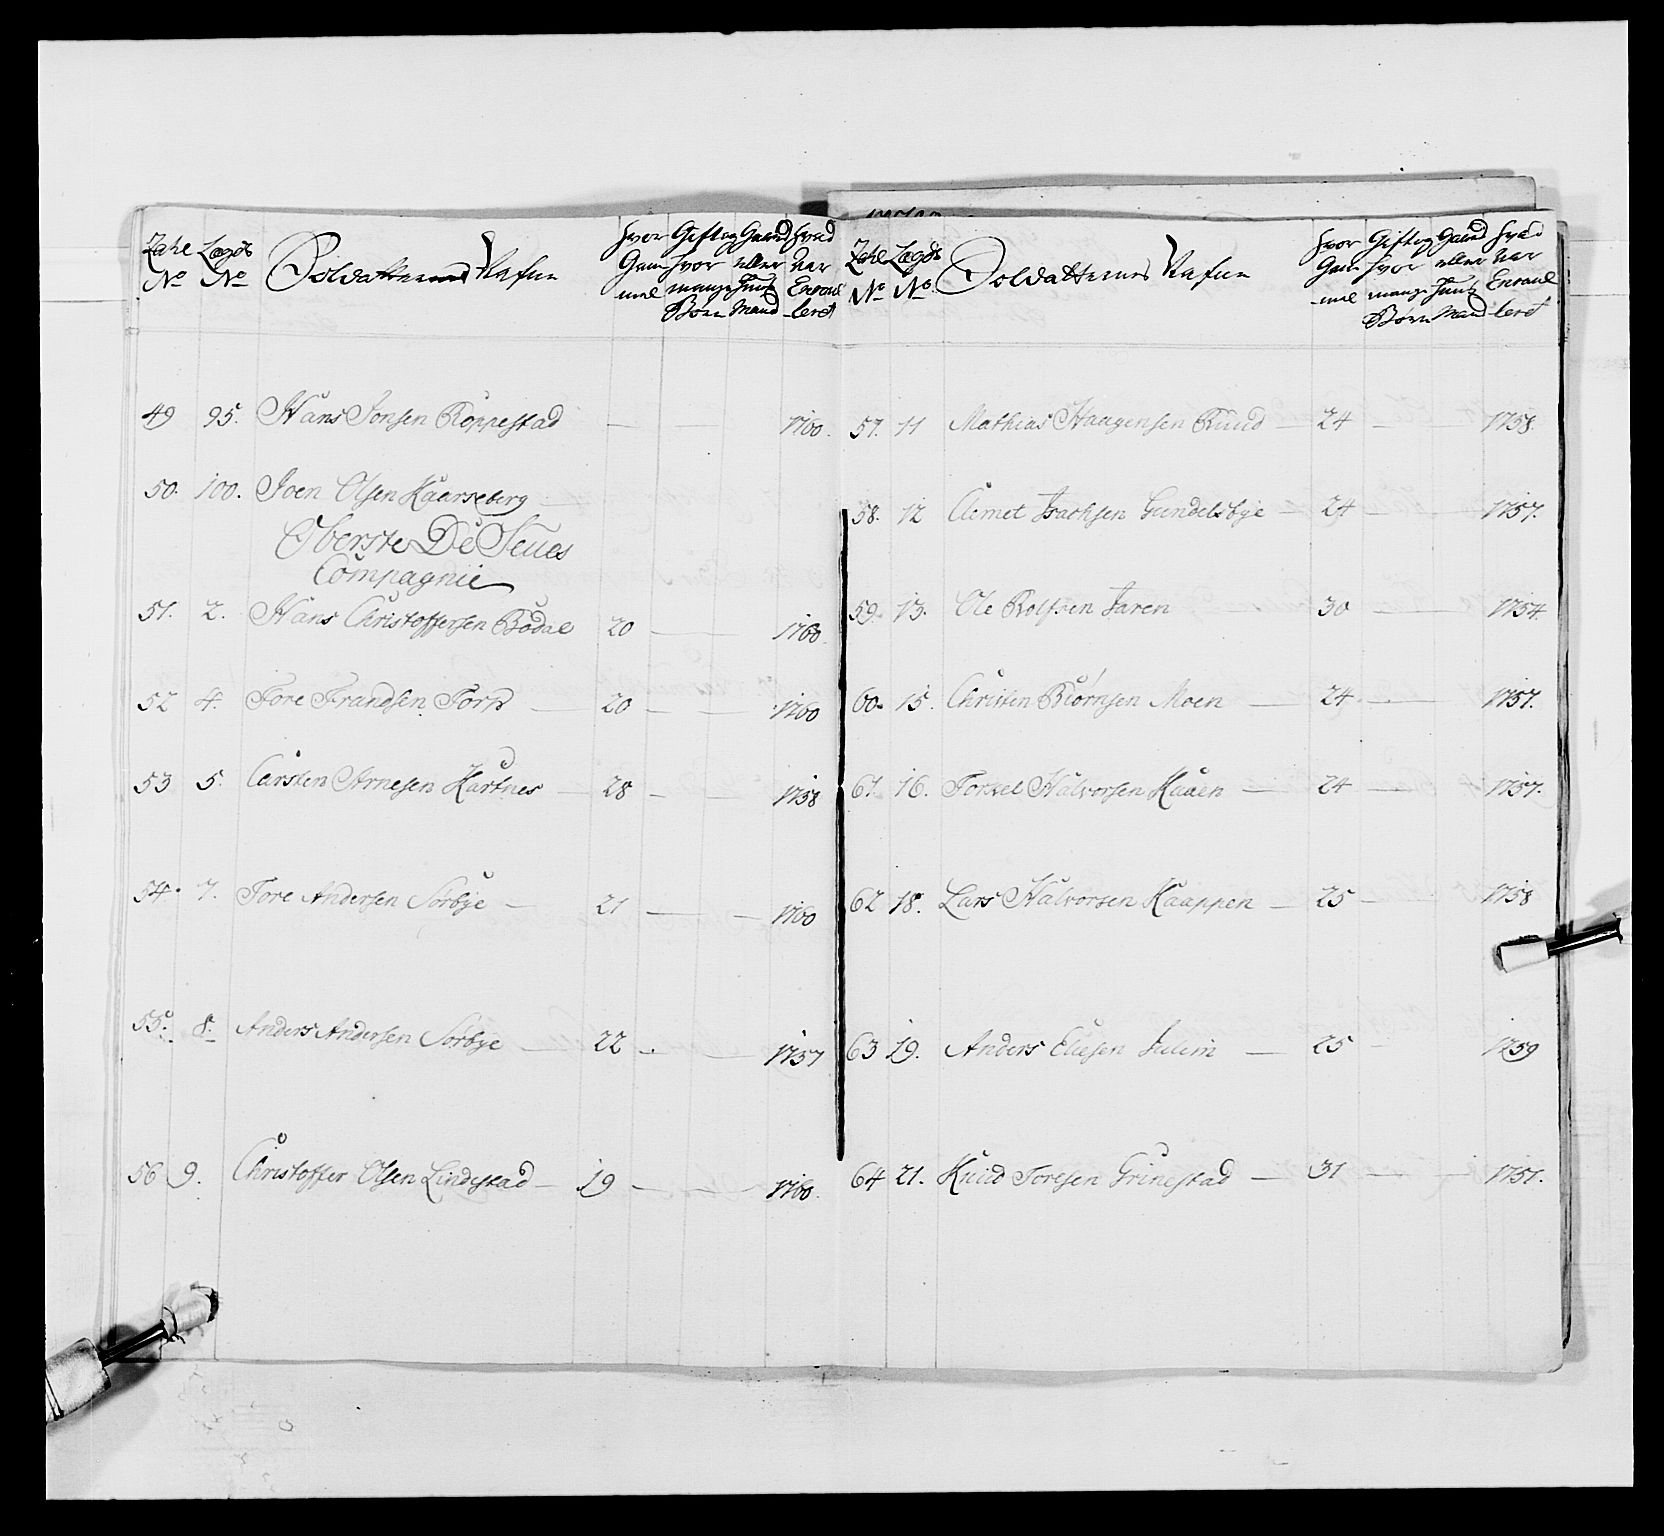 Zahl Lægds Soldatternes Nafne hvor Gift og Gaard hvad
No No Gam- hvor eller Aar
mel mange Huus Enroul
Børn Mand -leret
49 95. Hans Jonsen Roppestad — 1760.
50. 100. Joen Olsen Kaarseberg
Oberste De Seues
Compagnie
51. 2. Hans Christoffersen Bødal 20 — 1760.
52 4. Tore Frandsen Torp — 20 — — 1760
53 5. Carsten Arnesen Hartnes — 28 — 1758
54. 7. Tore Andersen Sørbye — 21 — — 1760
55. 8. Anders Andersen Sørbye — 22 — — 1757
56 9. Christoffer Olsen Lindestad — 19 — — 1760.
Zahl Lægds Soldatternes Nafne hvor Gift og Gaard hvad
No No Gam- hvor eller Aar
-mel mange Huus Enroul
Børn Mand -leret
57. 11 Mathias Haagensen Ruud — 24 — 1758.
58. 12 Clemet Isachsen Gundelsbye — 24 — 1757.
59. 13. Ole Rolfsen Jaren 30 — 1754.
60. 15. Christen Biørnsen Moen — 24 — 1757.
61. 16. Torkel Halvorsen Kaaen — 24 — 1757.
62 18. Lars Halvorsen Kaappen — 25 — 1758
63 19. Anders Eliesen Julem — 25 — 1759
64 21. Knud Toresen Grinestad — 31 — — 1751.